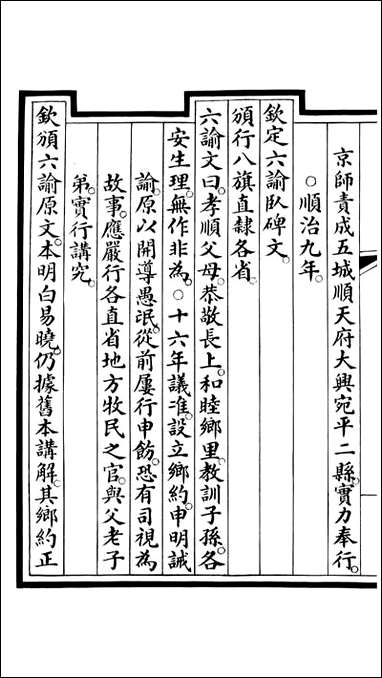 京師責成五城順天府大興宛平二縣。實力奉行。
○順治九年。
欽定六諭臥碑文。
頒行八旗直隸各省。
六諭文曰。孝順父母。恭敬長上。和睦鄉里。教訓子孫。各
安生理。無作非為。○十六年議準。設立鄉約。申明誡
諭。原以開導愚氓。從前屢行申飭。恐有司視為
故事。應嚴行各直省地方牧民之官。與父老子
弟。實行講究。
欽頒六諭原文。本明白易曉。仍據舊本講解。其鄉約正